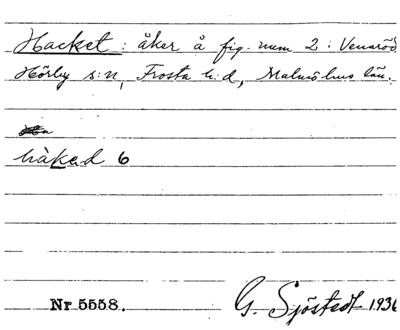 Hacket: åker å fig. num 2: Venaröd
Hörby s:n, Frosta h:d, Malmöhus län.
håked 6
Nr 5558. G. Sjöstedt 1936